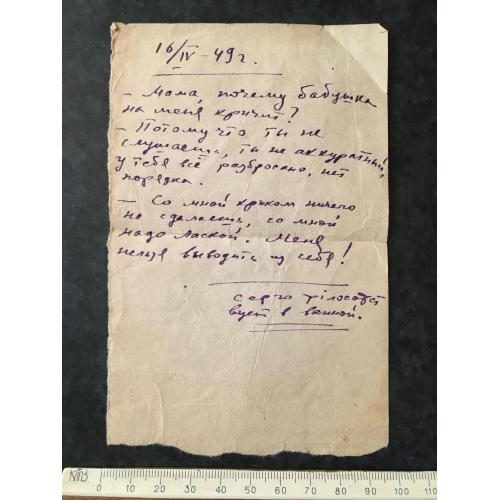 16/IV-49 г.
— Мама, почему бабушка
на меня кричит?
— Потому что ты не
слушаешь, ты не аккуратный,
у тебя всё разбросано, нет
порядка.
— Со мной криком ничего
не сделаешь, со мной
надо лаской. Меня
нельзя выводить из себя!
філософст
вует в ванной.
0 10 20 30 40 50 60 70 80 90 100 110